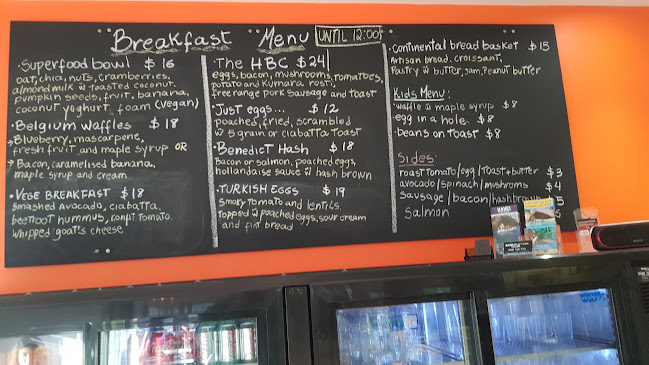 "Breakfast "Menu" UNTIL 12:00
·Superfood bowl $16
oat, chia, nuts, cramberries,
almond milk w toasted coconut
pumpkin seeds, fruit, banana,
coconut yoghurt foam (vegan)
·Belgium Waffles $18
→Blueberry, mascarpone,
fresh fruit and maple syrup OR
→Bacon, caramelised banana,
maple syrup and cream
·VEGE BREAKFAST $18
smashed avocado, ciabatta,
beetroot hummus, confit tomato
whipped goat's cheese
·The HBC $24
eggs, bacon, mushrooms, tomatoes,
potato and kumara rosti,
free range pork sausage and toast
·Just eggs... $12
poached, fried, scrambled
w 5 grain or ciabatta toast
·Benedict Hash $18
Bacon or salmon, poached eggs,
hollandaise sauce w hash brown
·TURKISH EGGS $19
smoky tomato and lentils
topped w poached eggs, sour cream
and flat bread
·Continental bread basket $15
Artisan bread, croissant,
Pastry w butter, jam, Peanut butter
Kids Menu:
·waffle w maple syrup $8
·egg in a hole $8
·beans on toast $8
Sides:
roast tomato/egg/toast+butter $3
avocado/spinach/mushroms $4
sausage/bacon/hashbrown 5
salmon